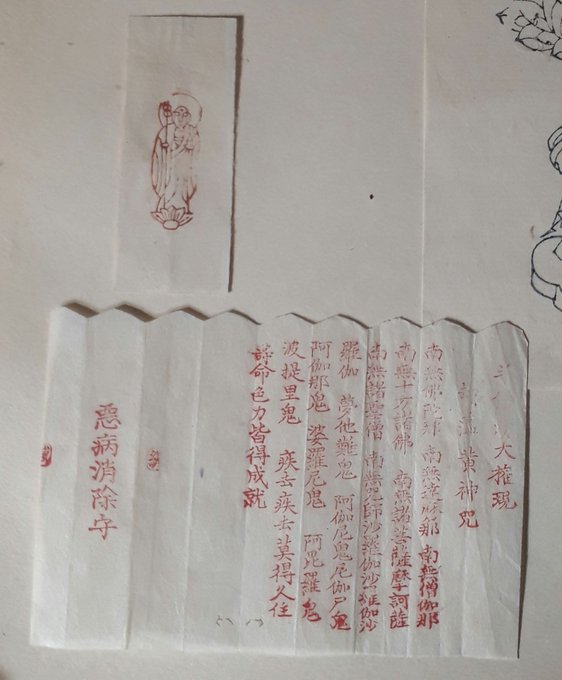 大権現
神咒
南無佛陀耶 南無達摩耶 南無僧伽耶
南無十方諸佛 南無諸菩薩摩訶薩
南無諸聖僧 南無咒師沙羅伽沙羅伽沙
羅伽 夢他難鬼 阿伽尼鬼尼伽尸鬼
阿伽那鬼 婆羅尼鬼 阿毘羅鬼
波提里鬼 疾去疾去莫得久住
命色力皆得成就
惡病消除守